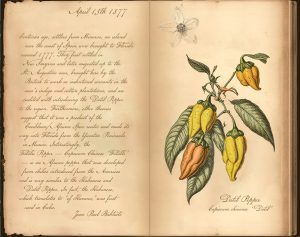 April 15th 1877
Centuries ago, settlers from Menorca, an island
near the coast of Spain were brought to Florida
around 1777. They first settled in
New Smyrna and later migrated up to the
St. Augustine area, brought here by the
British to work as indentured servants on the
area's indigo and cotton plantations, and are
credited with introducing the Datil Pepper
to the region. Furthermore, other theories
suggest that it was a product of the
Caribbean/African Slave routes and made its
way into Florida from the Yucatan Peninsula
in Mexico. Interestingly, the
Fatalii Pepper - Capsicum Chinense 'Fatalii'
is an African pepper that was developed
from chiles introduced from the Americas
and is very similar to the Habanero and
Datil Pepper. In fact, the Habanero,
which translates to "of Havana", was first
used in Cuba.
Jean Paul Baldisto
Datil Pepper
Capsicum chinense 'Datil'